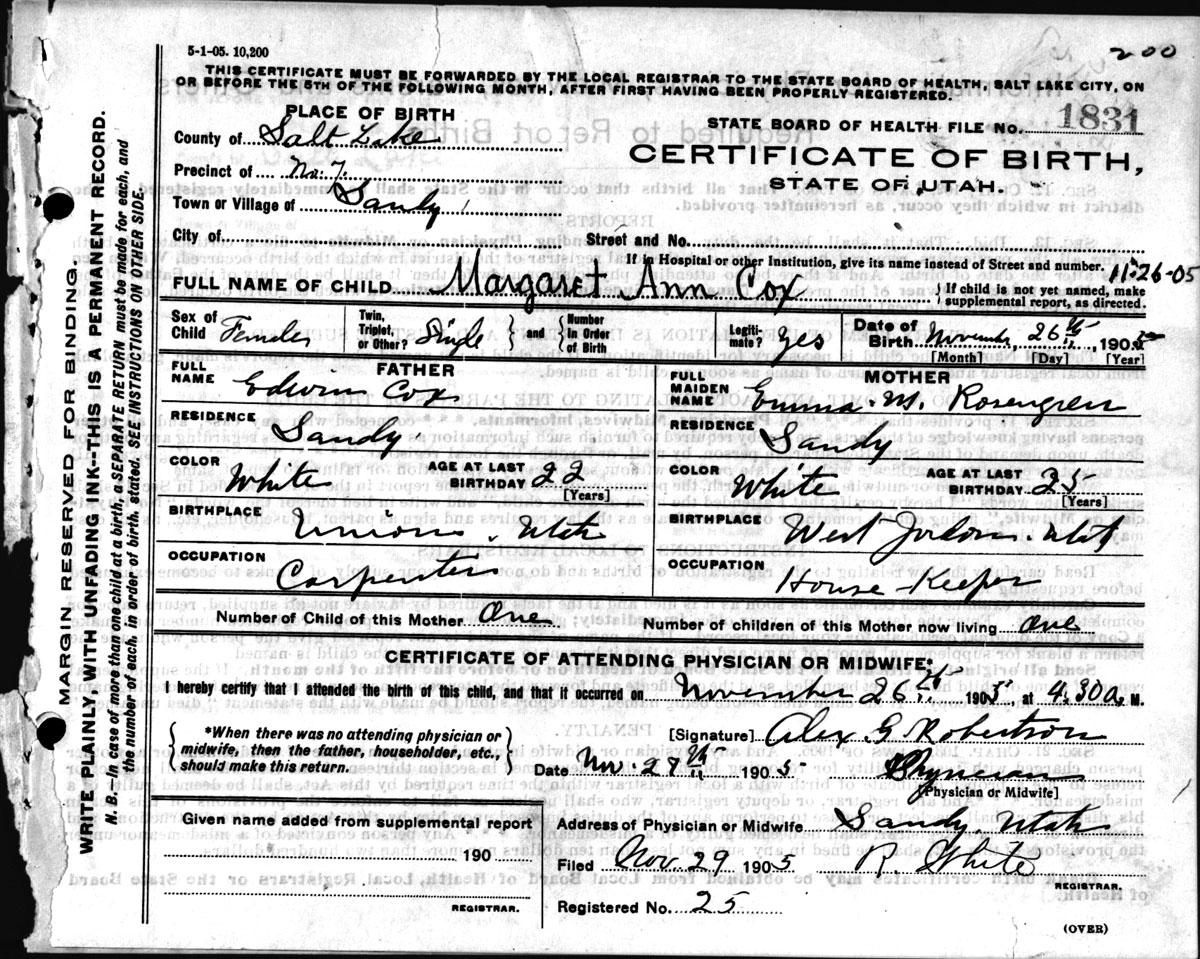 5-1-05. 10,200
200
THIS CERTIFICATE MUST BE FORWARDED BY THE LOCAL REGISTRAR TO THE STATE BOARD OF HEALTH, SALT LAKE CITY, ON
OR BEFORE THE 5TH OF THE FOLLOWING MONTH, AFTER FIRST HAVING BEEN PROPERLY REGISTERED.
MARGIN RESERVED FOR BINDING.
WRITE PLAINLY, WITH UNFADING INK--THIS IS A PERMANENT RECORD.
N. B.--In case of more than one child at a birth, a SEPARATE RETURN must be made for each, and
the number of each, in order of birth, stated. SEE INSTRUCTIONS ON OTHER SIDE.
PLACE OF BIRTH
County of Salt Lake
Precinct of No. 7.
Town or Village of Sandy
STATE BOARD OF HEALTH FILE NO. 1831
CERTIFICATE OF BIRTH,
STATE OF UTAH.
City of Street and No.
If in Hospital or other Institution, give its name instead of Street and number. 11-26-05
FULL NAME OF CHILD Margaret Ann Cox { If child is not yet named, make
supplemental report, as directed.
Sex of Child Female Twin, Triplet, or Other? Single and Number in Order of Birth Legiti-mate? yes Date of Birth November, 26th, 1905
[Month] [Day] [Year]
FATHER
FULL NAME Edwin Cox
RESIDENCE Sandy
COLOR White AGE AT LAST BIRTHDAY 22
[Years]
BIRTHPLACE Union, Utah
OCCUPATION Carpenter
MOTHER
FULL MAIDEN NAME Emma M. Rosengren
RESIDENCE Sandy
COLOR White AGE AT LAST BIRTHDAY 25
[Years]
BIRTHPLACE West Jordan, Utah
OCCUPATION House Keeper
Number of Child of this Mother One Number of children of this Mother now living One
CERTIFICATE OF ATTENDING PHYSICIAN OR MIDWIFE*
I hereby certify that I attended the birth of this child, and that it occurred on November 26th 1905, at 4.30 a. M.
{ *When there was no attending physician or
midwife, then the father, householder, etc.,
should make this return. }
[Signature] Alex G Robertson
Date Nov. 28th 1905 Physician
[Physician or Midwife]
Given name added from supplemental report
190
REGISTRAR.
Address of Physician or Midwife Sandy, Utah
Filed Nov. 29 1905 R. White
REGISTRAR.
Registered No. 25
(OVER)